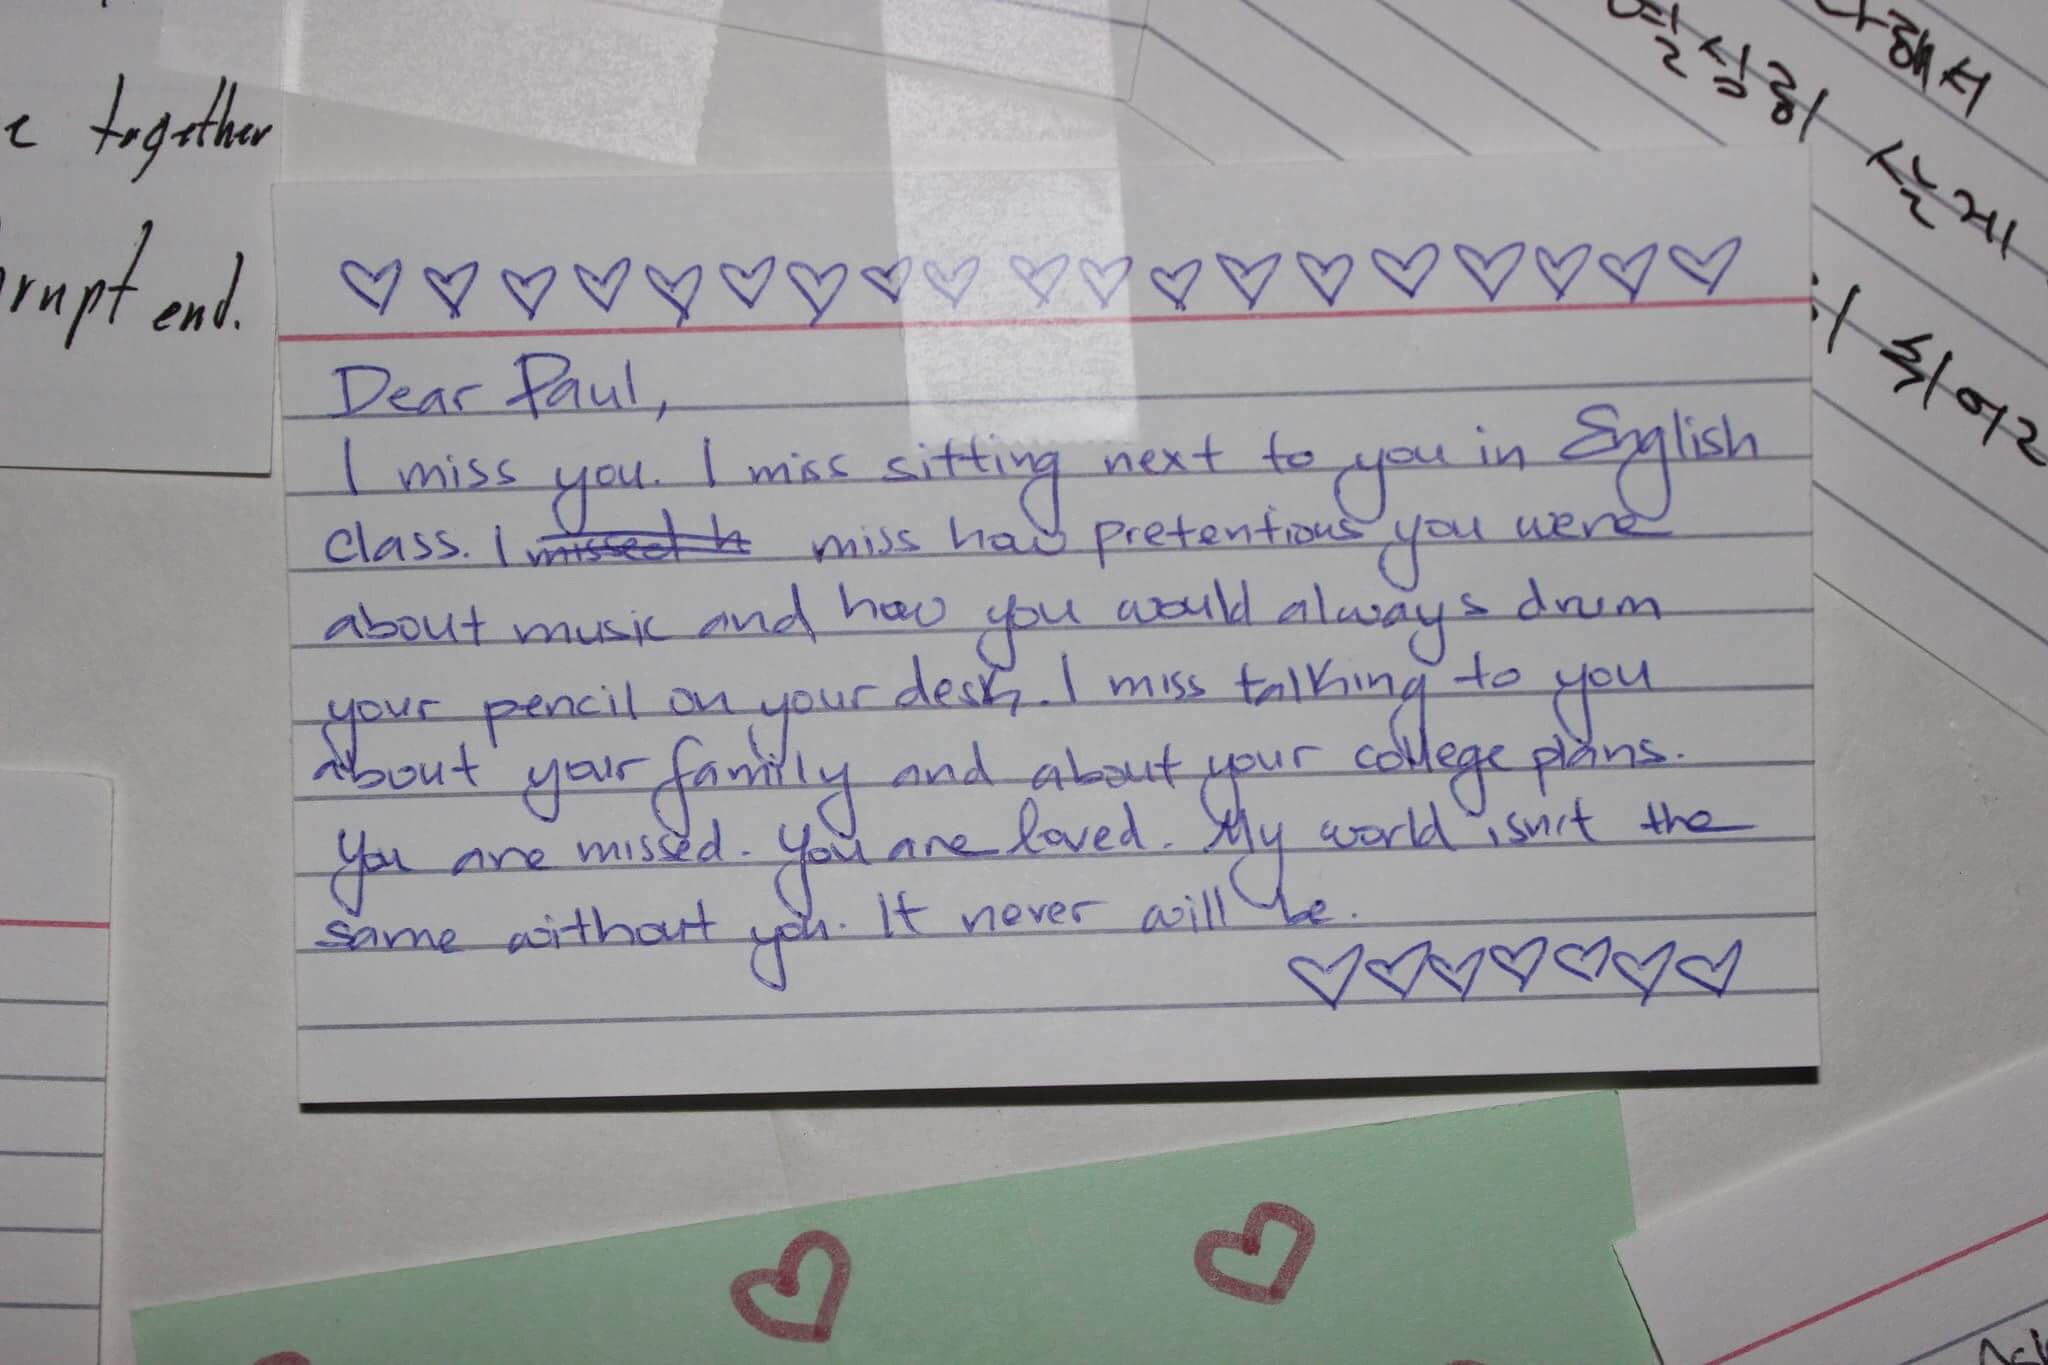 together
end.
해서
열심히 살게
Dear Paul,
I miss you. I miss sitting next to you in English
class. I missed h miss how pretentious you were
about music and how you would always drum
your pencil on your desk. I miss talking to you
about your family and about your college plans.
You are missed. You are loved. My world isn't the
same without you. It never will be.